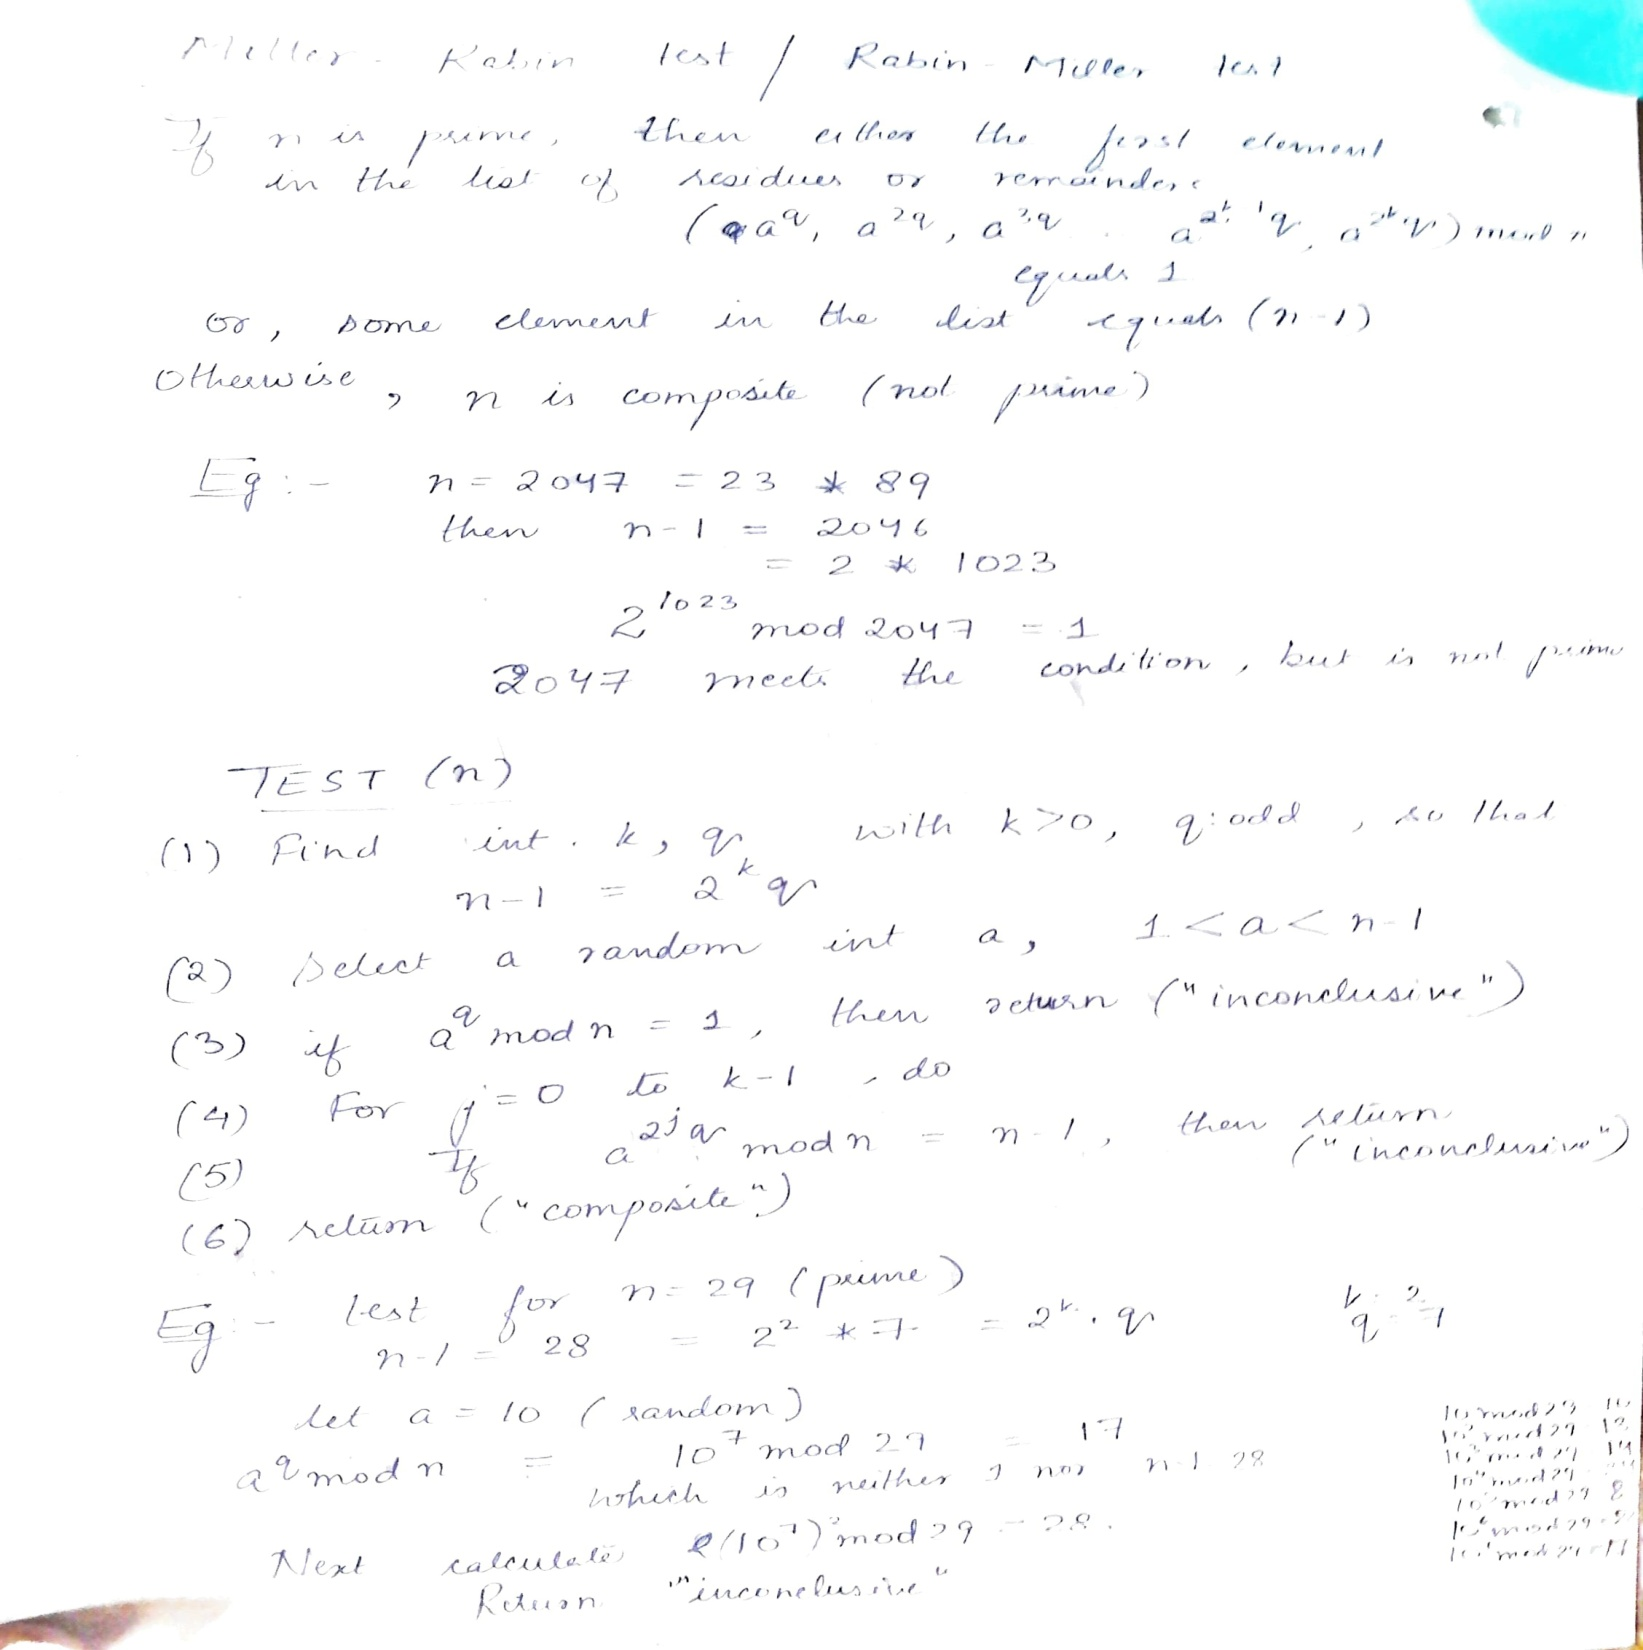 Miller - Rabin test / Rabin - Miller test
If n is prime, then either the first element
in the list of residues or remainders
(a^q, a^2q, a^2²q . . a^2^k-1 q, a^2^k q) mod n
equals 1
or, some element in the list equals (n-1)
Otherwise, n is composite (not prime)
Eg :- n = 2047 = 23 * 89
then n-1 = 2046
= 2 * 1023
2^1023 mod 2047 = 1
2047 meets the condition, but is not prime
TEST (n)
(1) Find int. k, q with k>0, q: odd, so that
n-1 = 2^k q
(2) Select a random int a, 1 < a < n-1
(3) if a^q mod n = 1, then return ("inconclusive")
(4) For j = 0 to k-1, do
(5) If a^2^j q mod n = n-1, then return
("inconclusive")
(6) return ("composite")
Eg :- test for n = 29 (prime)
n-1 = 28 = 2² * 7 = 2^k . q
k = 2
q = 7
let a = 10 (random)
a^q mod n = 10^7 mod 29 = 17
which is neither 1 nor n-1 28
Next calculate (10^7)² mod 29 = 28.
Return "inconclusive"
10 mod 29 10
10² mod 29 13
10³ mod 29 14
10⁴ mod 29
10⁵ mod 29 8
10⁶ mod 29
10⁷ mod 29 = 17